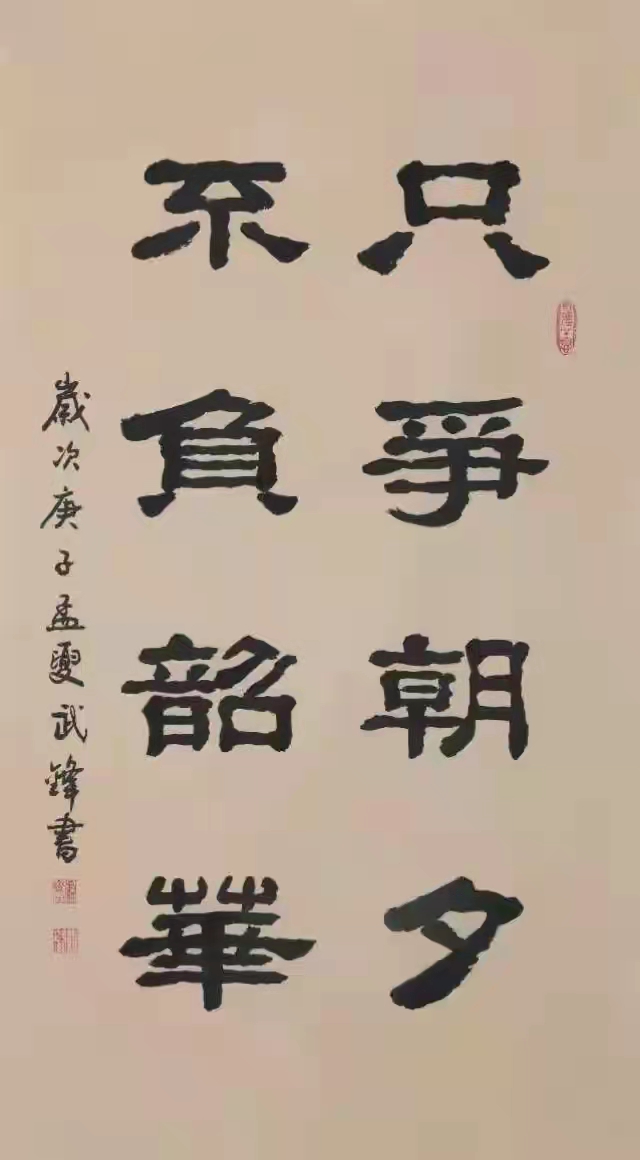 只爭朝夕
不負韶華
歲次庚子孟夏武鋒書